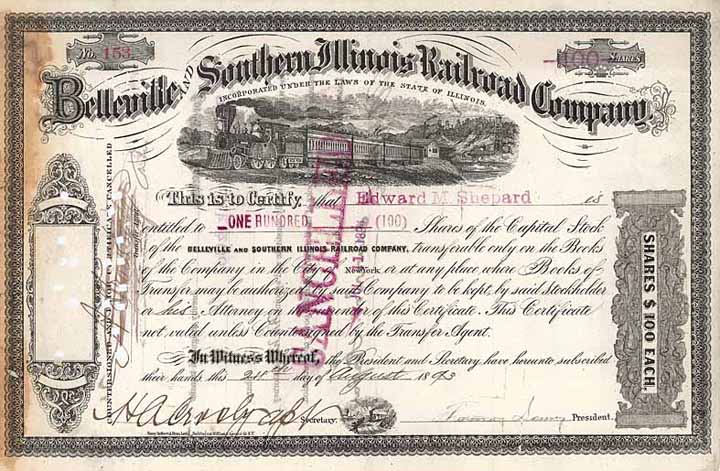 No. 153
100 SHARES
Belleville AND Southern Illinois Railroad Company.
INCORPORATED UNDER THE LAWS OF THE STATE OF ILLINOIS.
This is to Certify, that Edward M. Shepard is
entitled to ONE HUNDRED (100) Shares of the Capital Stock
of the BELLEVILLE AND SOUTHERN ILLINOIS RAILROAD COMPANY, transferable only on the Books
of the Company in the City of New York or at any place where Books of
Transfer may be authorized by said Company to be kept, by said Stockholder
or his Attorney on the surrender of this Certificate. This Certificate
not valid unless Countersigned by the Transfer Agent.
In Witness Whereof, the President and Secretary, have hereunto subscribed
their hands this 21st day of August 1893
Secretary.
President.
SHARES $100 EACH.
CANCELLED